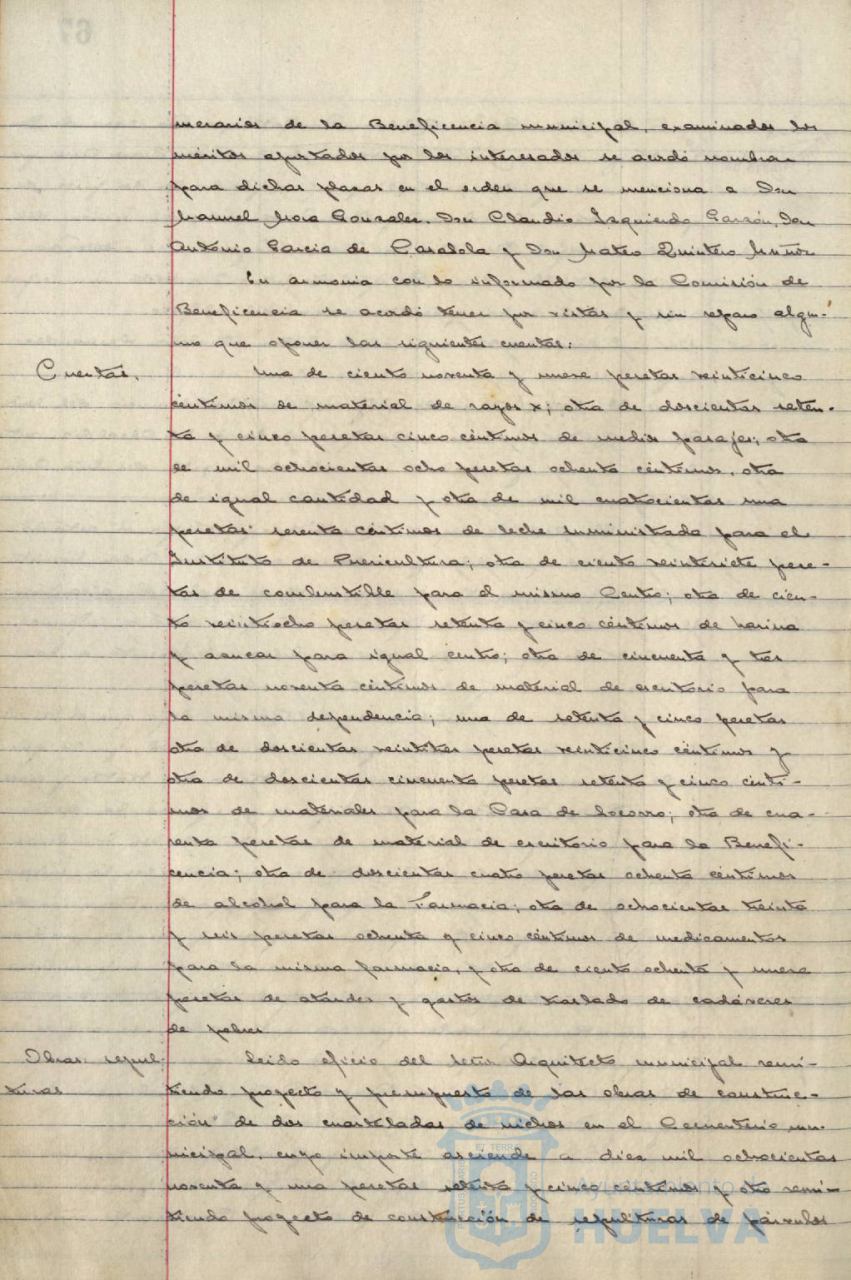 merarios de la Beneficencia municipal, examinados los
méritos aportados por los interesados se acordó nombrar
para dichas plazas en el orden que se menciona a Don
Manuel Mora Gonzalez, Don Claudio Izquierdo Garzón, Don
Antonio Garcia de Casalola y Don Mateo Quintero Muñoz
En armonia con lo informado por la Comisión de
Beneficencia se acordó tener por vistas y sin reparo algu-
no que oponer las siguientes cuentas:
Cuentas.
Una de ciento noventa y nueve pesetas veinticinco
céntimos de material de rayos x; otra de doscientas seten-
ta y cinco pesetas cinco céntimos de medios pasajes; otra
de mil ochocientas ocho pesetas ochenta céntimos, otra
de igual cantidad y otra de mil cuatrocientas una
pesetas sesenta céntimos de leche suministrada para el
Instituto de Puericultura; otra de ciento veintisiete pese-
tas de combustible para el mismo Centro; otra de cien-
to veintiocho pesetas setenta y cinco céntimos de harina
y azucar para igual centro; otra de cincuenta y tres
pesetas noventa céntimos de material de escritorio para
la misma dependencia; una de setenta y cinco pesetas
otra de doscientas veintitres pesetas veinticinco céntimos y
otra de doscientas cincuenta pesetas setenta y cinco cénti-
mos de materiales para la Casa de Socorro; otra de cua-
renta pesetas de material de escritorio para la Benefi-
cencia; otra de doscientas cuatro pesetas ochenta céntimos
de alcohol para la Farmacia; otra de ochocientas treinta
y seis pesetas ochenta y cinco céntimos de medicamentos
para la misma farmacia, y otra de ciento ochenta y nueve
pesetas de ataudes y gastos de traslado de cadáveres
de pobres
Obras: sepul-
turas
Leido oficio del Señor Arquitecto municipal remi-
tiendo proyecto y presupuesto de las obras de construc-
ción de dos cuarteladas de nichos en el Cementerio mu-
nicipal, cuyo importe asciende a diez mil ochocientas
noventa y una pesetas setenta y cinco céntimos y otro remi-
tiendo proyecto de construcción de sepulturas de párvulos
Ayuntamiento
HUELVA